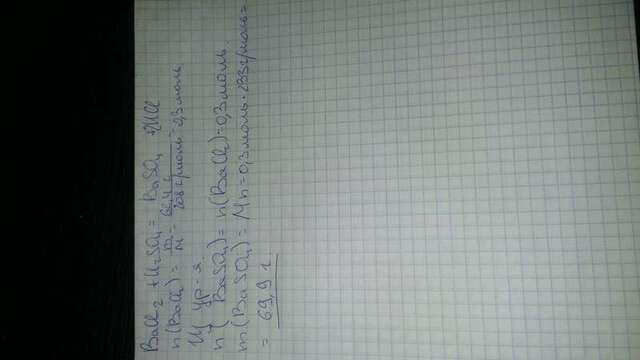 BaCl₂ + H₂SO₄ = BaSO₄ 2HCl
n(BaCl₂) = m/M = 62,4 г/208 г/моль = 0,3 моль
Из ур-я
n(BaSO₄) = n(BaCl₂) = 0,3 моль
m(BaSO₄) = Mn = 0,3 моль · 233 г/моль =
= 69,9 г